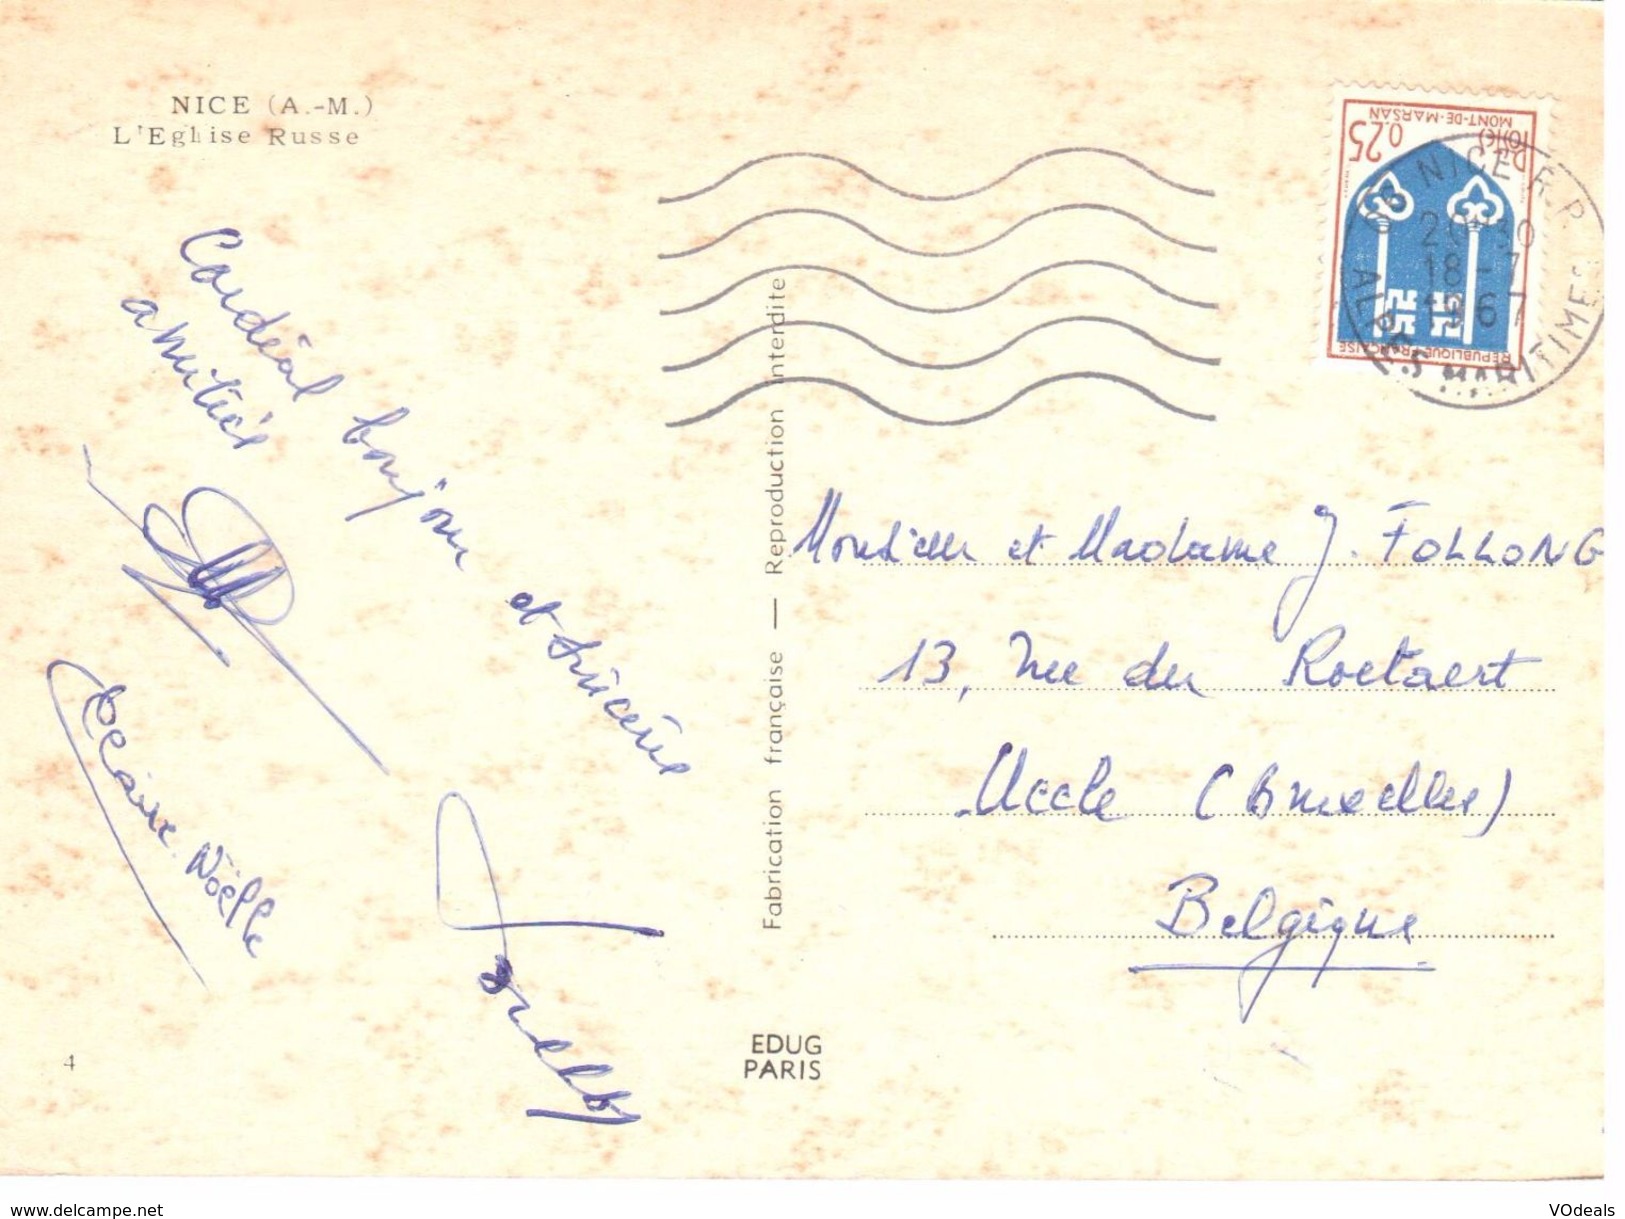 NICE (A.-M.)
L'Eglise Russe
Cordial bonjour et sincères
amitiés
Claire. Noëlle
4
Fabrication française — Reproduction interdite
EDUG
PARIS
0.25
MONT-DE-MARSAN
REPUBLIQUE FRANÇAISE
06 NICE R.P.
18-7
1967
ALPES MARITIMES
Monsieur et Madame J. FOLLONG
13, rue du Roetaert
Uccle (Bruxelles)
Belgique
www.delcampe.net
VOdeals